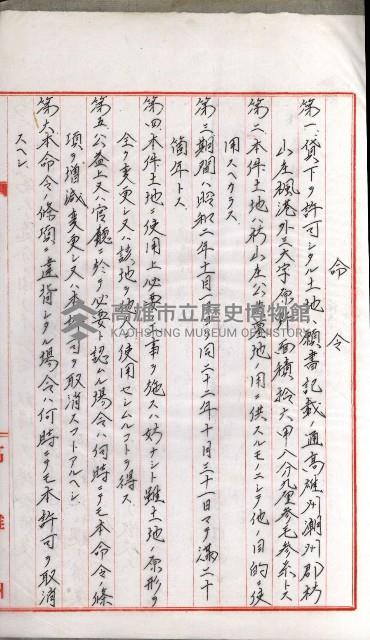 命令
第一、貸下ヲ許可シタル土地ハ願書記載ノ通高雄州潮州郡枋
山庄楓港外三大字原野面積拾六甲八分九厘参毛参糸トス
第二、本件土地ハ枋山庄公共墓地ノ用ニ供スルモノニシテ他ノ目的ニ使
用スヘカラス
第三、期間ハ昭和二年十一月一日ヨリ向二十二年十月三十一日マテ満二十
箇年トス
第四、本件土地ニ使用上必要ナル工事ヲ施スハ妨ナシト雖土地ノ原形ヲ
全ク変更シ又ハ該地ヲ他ニ使用セシムルコトヲ得ス
第五、公益上又ハ官廳ニ於テ必要ト認ムル場合ハ何時ニテモ本命令條
項ヲ増減変更シ又ハ本許可ヲ取消スコトアルヘシ
第六、本命令ノ條項ニ違背シタル場合ハ何時ニテモ本許可ヲ取消
スヘシ
高雄州
高雄市立歷史博物館
KAOHSIUNG MUSEUM OF HISTORY